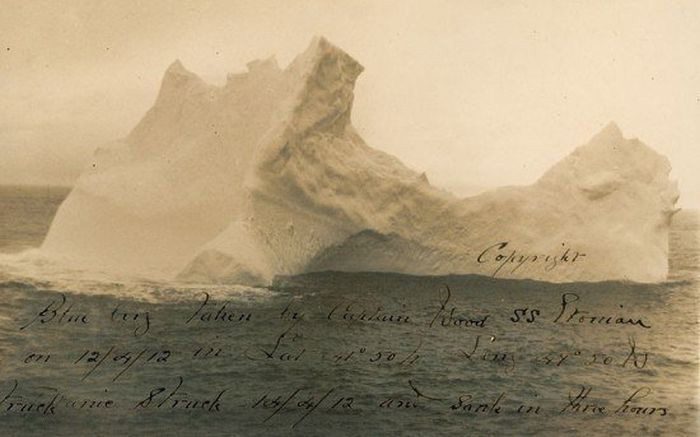 Copyright
Blue berg taken by Captain Wood SS Etonian
on 12/4/12 in Lat 41°50 N Long W
Struck 14/4/12 and Sank in three hours